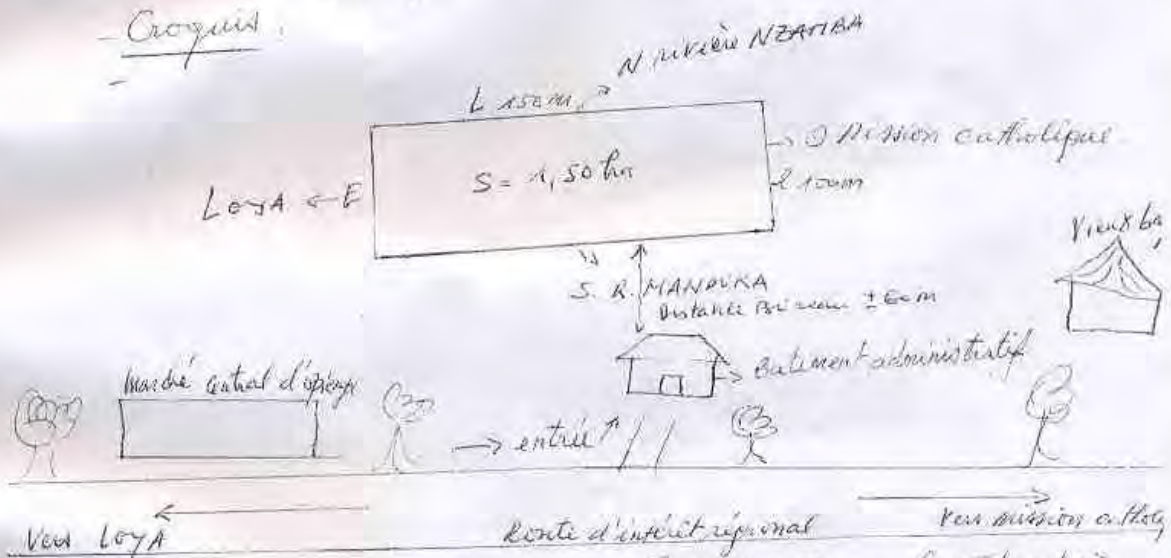 - Croquis.
-
N rivière NZAMBA
L 150m
→ O Mission catholique
S = 1,50 ha
l 100m
LOYA ← E
Vieux ba
S. R. MANDUKA
Distance Bureau ± 60m
→ Batiment administratif
Marché central d'opienge
→ entrée
Vers LOYA
Route d'intérêt régional
Vers mission catholq